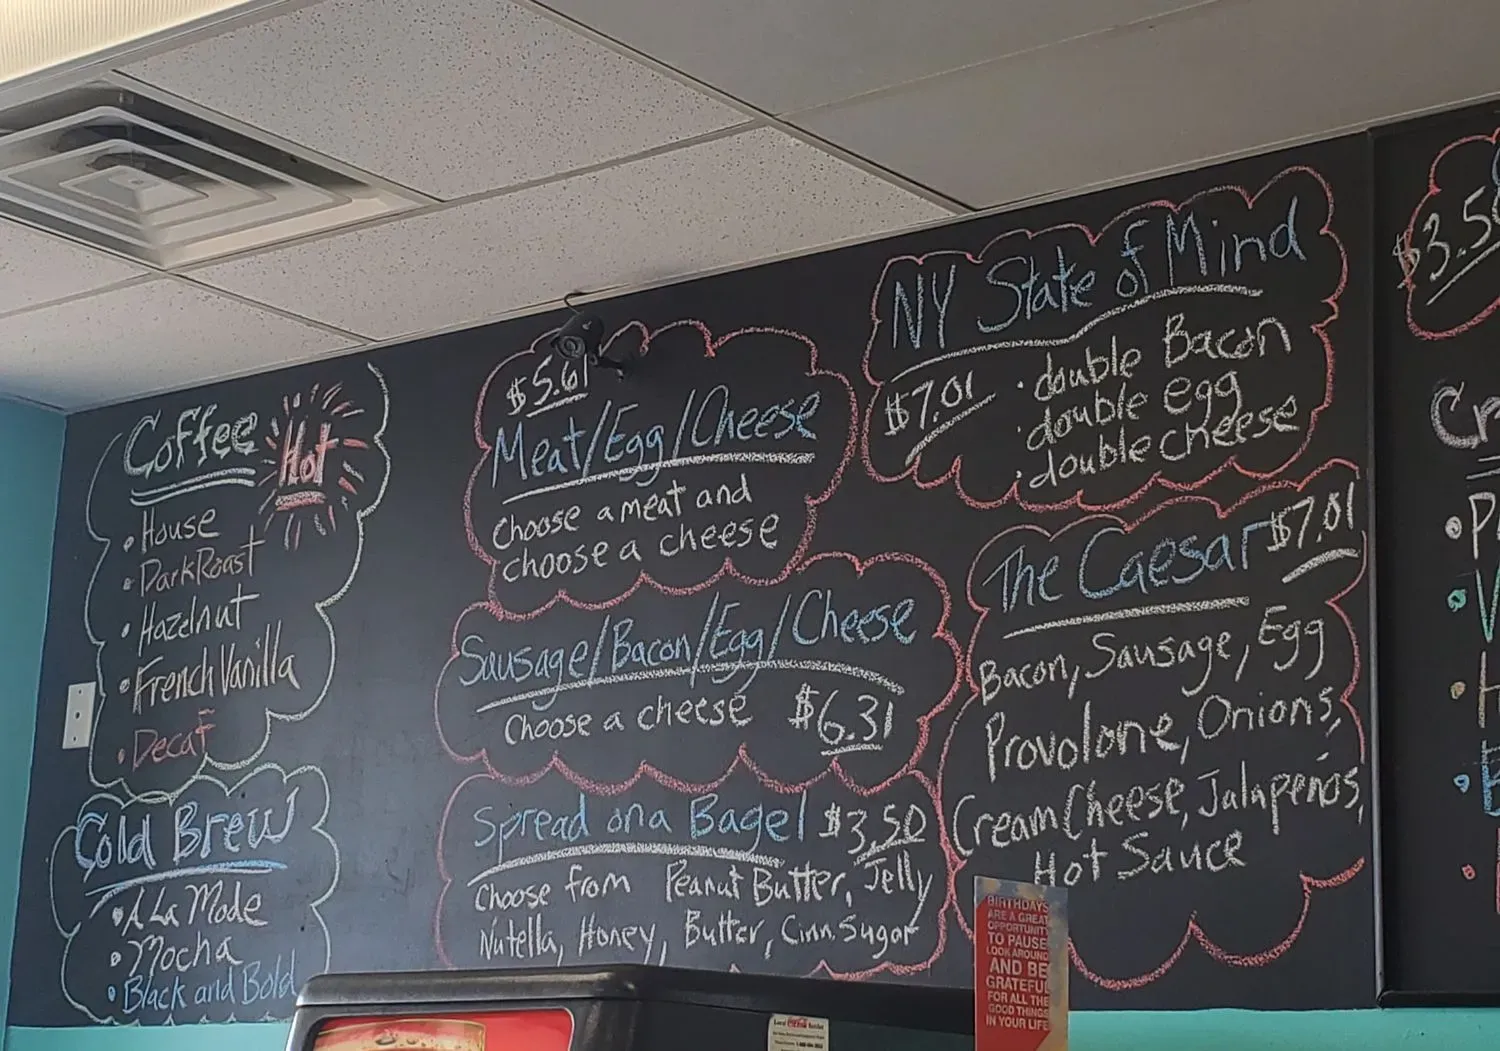 Coffee
Hot
• House
• Dark Roast
• Hazelnut
• French Vanilla
• Decaf
Cold Brew
• A La Mode
• Mocha
• Black and Bold
$5.61
Meat/Egg/Cheese
choose a meat and
choose a cheese
Sausage/Bacon/Egg/Cheese
Choose a cheese $6.31
Spread on a Bagel $3.50
Choose from Peanut Butter, Jelly
Nutella, Honey, Butter, Cinn. Sugar
NY State of Mind
$7.01
• double Bacon
• double egg
• double cheese
The Caesar $7.01
Bacon, Sausage, Egg
Provolone, Onions,
Cream Cheese, Jalapeños,
Hot Sauce
$3.50
BIRTHDAYS
ARE A GREAT
OPPORTUNITY
TO PAUSE
LOOK AROUND
AND BE
GRATEFUL
FOR ALL THE
GOOD THINGS
IN YOUR LIFE